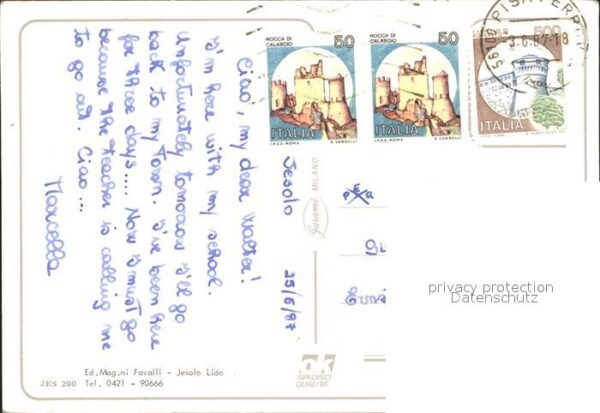 Ciao, my dear Walter!
I'm here with my school.
Unfortunately tomorrow I'll go
back to my Town. I've been here
for three days.... Now I must go
because the teacher is calling me
to go out. Ciao ...
Marcella
Jesolo
25/5/87
PER
ROCCA DI
CALASCIO
50
ITALIA
I.P.Z.S.-ROMA E. VANGELLI
ROCCA DI
CALASCIO
50
ITALIA
I.P.Z.S.-ROMA E. VANGELLI
500
ITALIA
MILANO
ok
SPEDISCI
QUALITÀ
privacy protection
Datenschutz
Ed. Mag.ni Favalli - Jesolo Lido
JES 200 Tel. 0421 - 90666